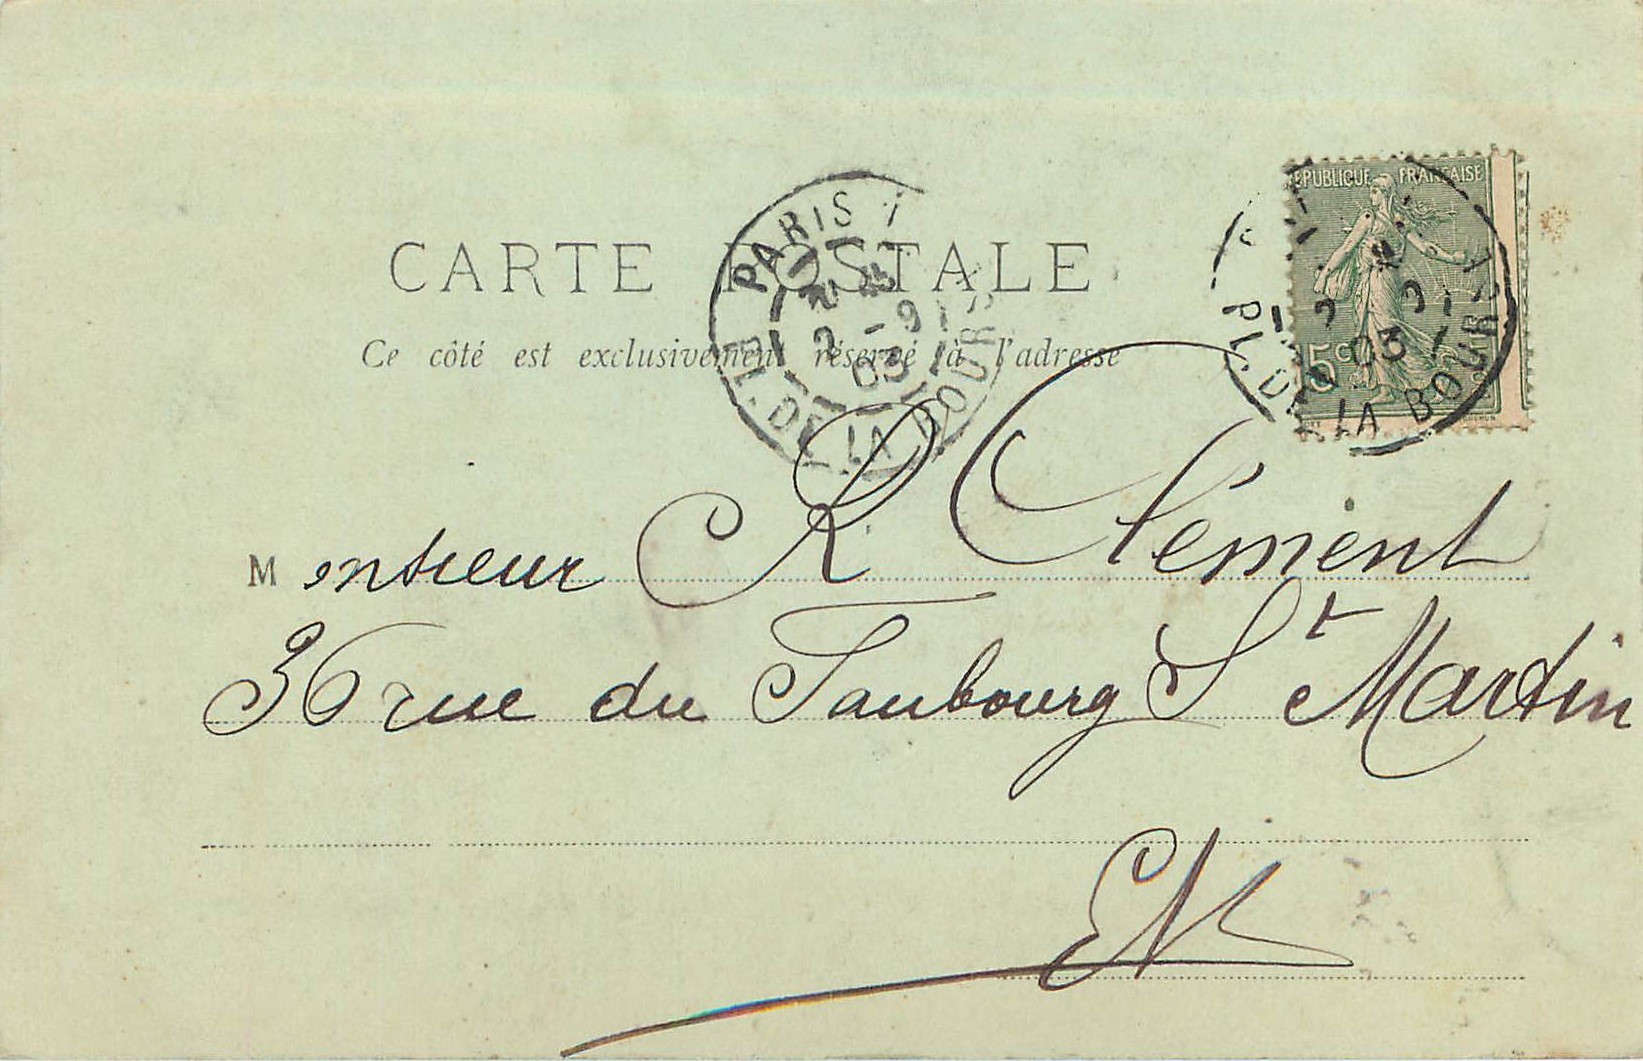 RÉPUBLIQUE FRANÇAISE
PARIS 1
PL. DE LA BOURSE
2 -9
03
PL. DE LA BOURSE
2 9
03
15c
CARTE POSTALE
Ce côté est exclusivement réservé à l'adresse
Monsieur R. Clément
36 rue du Faubourg St Martin